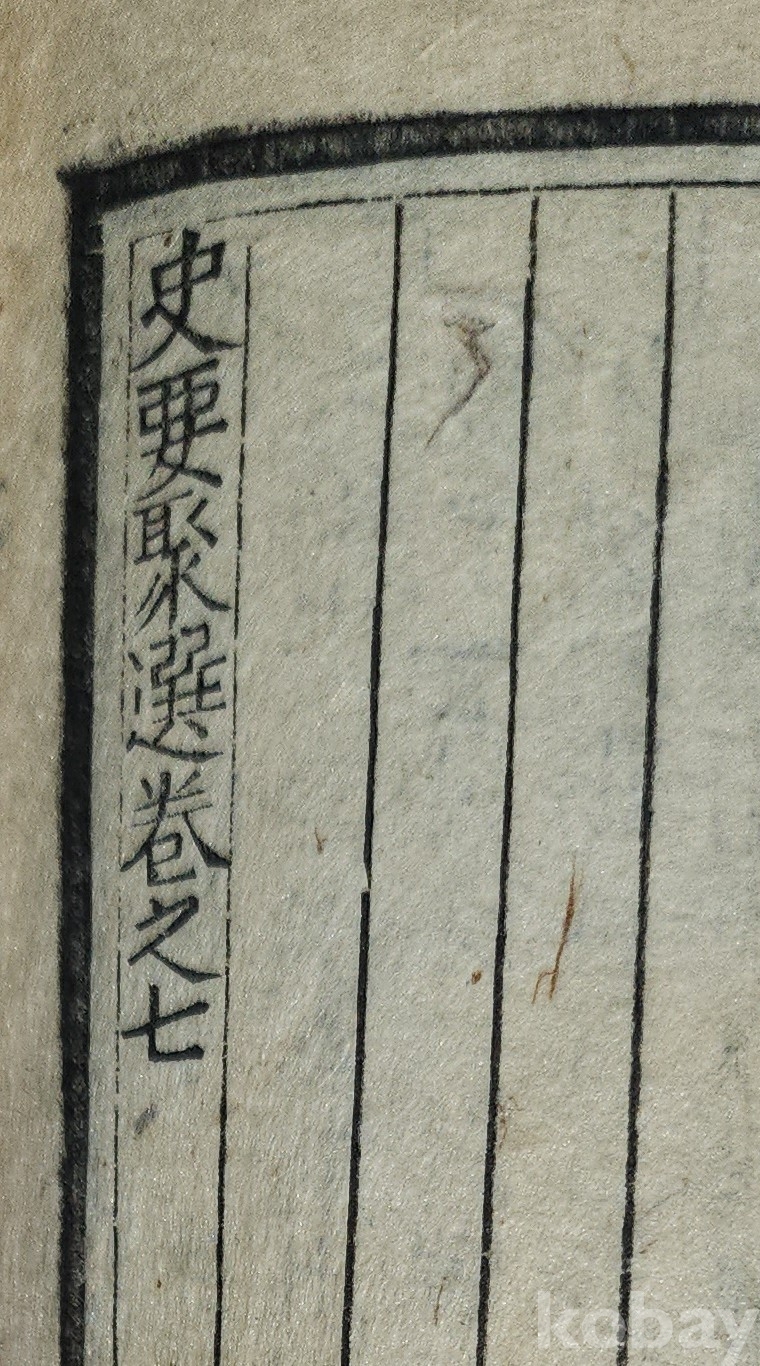 史要聚選卷之七
kobay